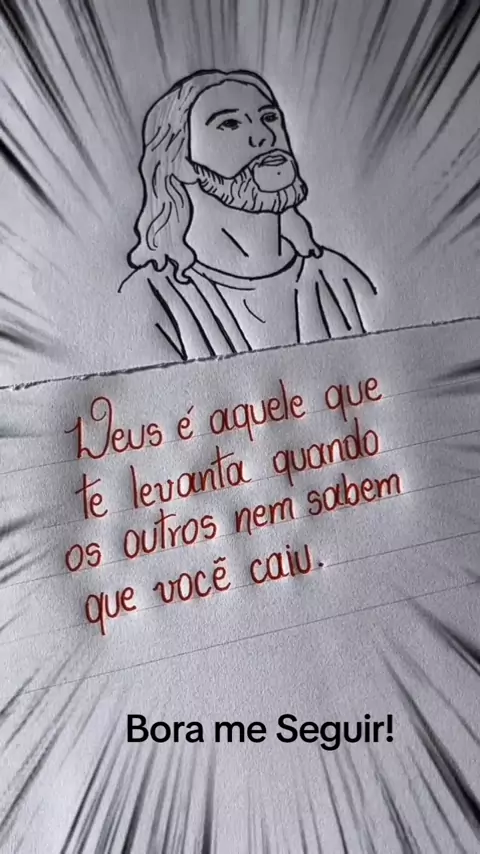 Deus é aquele que
te levanta quando
os outros nem sabem
que você caiu.
Bora me Seguir!